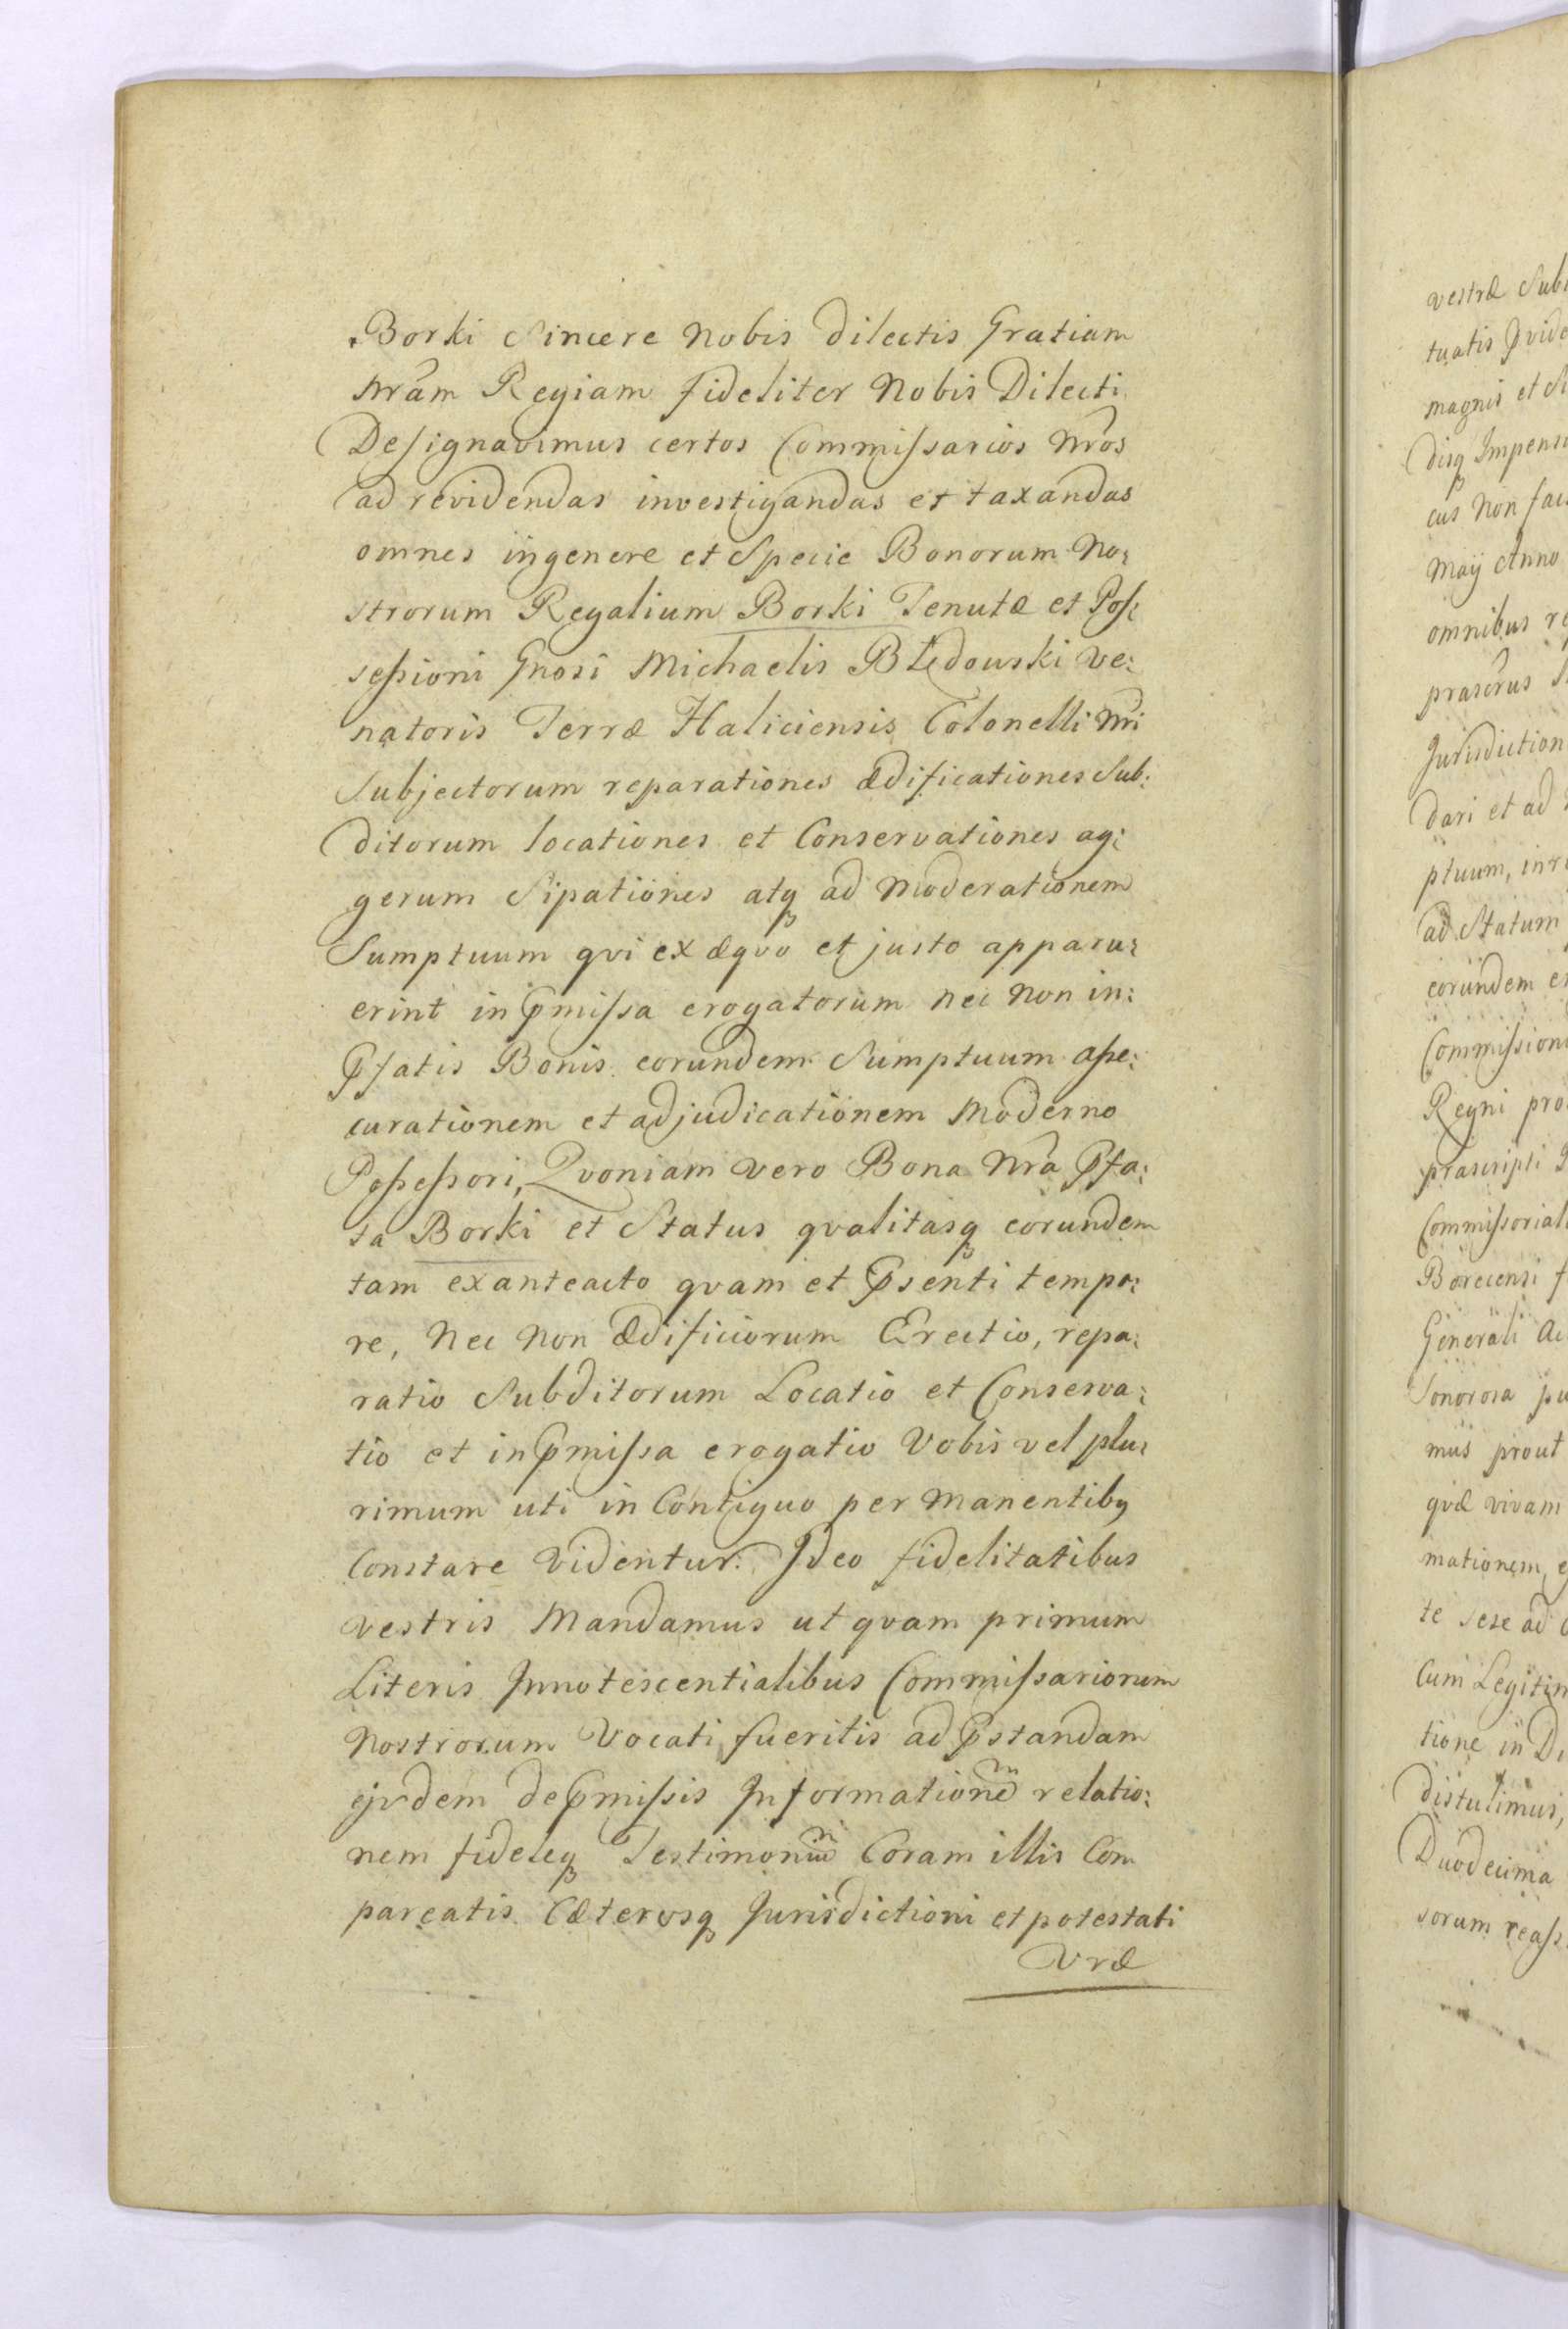 Borki Sincere Nobis dilectis Gratiam
Nrãm Regiam fideliter Nobis Dilecti
Designavimus certos Commissarios Nrõs
ad revidendas investigandas et taxandas
omnes ingenere et Specie Bonorum No:
strorum Regalium Borki Tenutæ et Pos:
sessioni Gnosi Michaelis Błędowski Ve:
natoris Terræ Haliciensis Colonelli Nri
Subjectorum reparationes ædificationes Sub:
ditorum locationes et Conservationes ag:
gerum Sipationes atq ad Moderationem
Sumptuum qvi ex æqvo et justo apparu:
erint in pmissa erogatorum nec non in:
pfatis Bonis eorundem Sumptuum asse:
curationem et adjudicationem Moderno
Possessori, Qvoniam vero Bona Nra pfa:
ta Borki et Status qvalitasq eorundem
tam exanteacto qvam et psenti tempo:
re, Nec Non ædificiorum Erectio, repa:
ratio Subditorum Locatio et Conserva:
tio et in pmissa erogatio Vobis vel plu:
rimum uti in Contiguo per Manentibq
Constare Videntur. Ideo fidelitatibus
vestris Mandamus ut qvam primum
Literis Innotescentialibus Commissariorum
Nostrorum Vocati fueritis ad pstandam
ejvdem de pmissis Informationẽ relatio:
nem fideleq Testimoniũ Coram illis Com
pareatis Cæterosq Jurisdictioni et potestati
Vræ
vestræ Sub
tuatis pvide
magnis et S
disq Impens
cus Non fac
Maÿ Anno
omnibus re
prascrus
Jurisdiction
dari et ad
ptuum, in
ad Statum
eorundem e
Commission
Regni pro
prascripti
Commissorial
Borecensi f
Generali Ac
Sonorosa pu
mus prout
qvæ vivam
mationem, e
te sese ad
Cum Legitim
tione in D
distulimus,
Duodecima
sorum reass